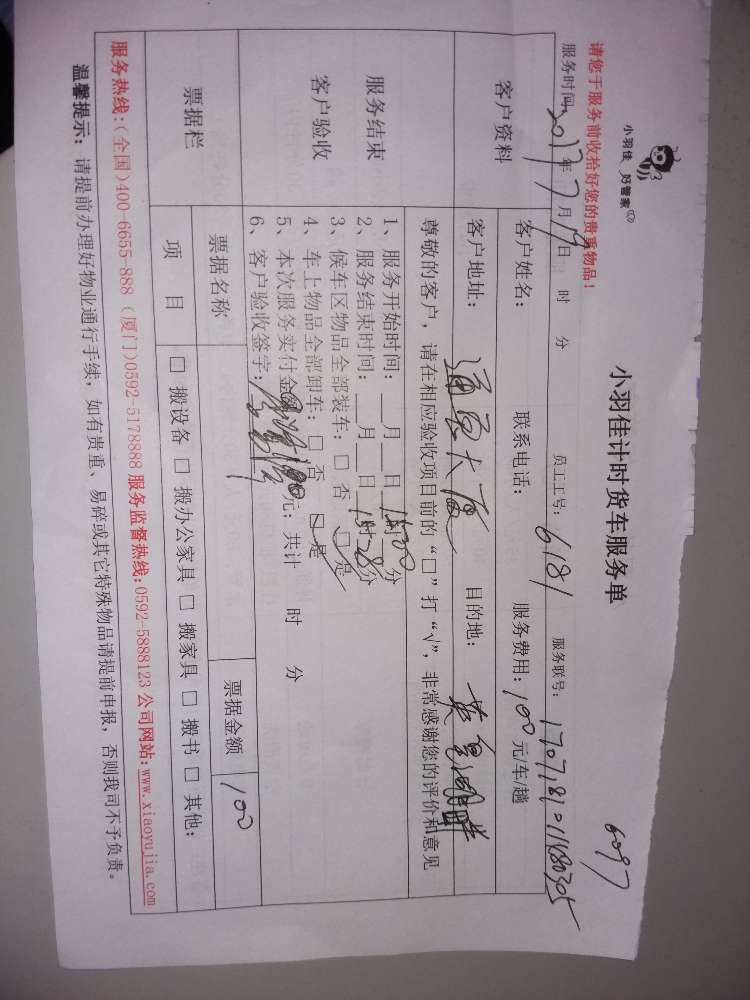 6097
小羽佳 好管家
小羽佳计时货车服务单
请您于服务前收拾好您的贵重物品！
服务时间: 2017年7月19日 时 分 员工工号: 6181 服务联号:
客户资料
客户姓名: 联系电话: 服务费用: 100元/车/趟
客户地址: 通 大厦 目的地:
服务结束
客户验收
尊敬的客户，请在相应验收项目前的“□”打“√”，非常感谢您的评价和意见
1、服务开始时间: __月__日 时 分
2、服务结束时间: __月__日 时 分
3、候车区物品全部装车: □ 否 ☑ 是
4、车上物品全部卸车: □ 否 ☑ 是
5、本次服务实付金额 元; 共计 时 分
6、客户验收签字:
票据栏
票据名称 票据金额 100
项 目 □ 搬设备 □ 搬办公家具 □ 搬家具 □ 搬书 □ 其他:
服务热线:(全国)400-6655-888 (厦门)0592-5178888 服务监督热线:0592-5888123 公司网站:www.xiaoyujia.com
温馨提示: 请提前办理好物业通行手续，如有贵重、易碎或其它特殊物品请提前申报，否则我司不予负责。